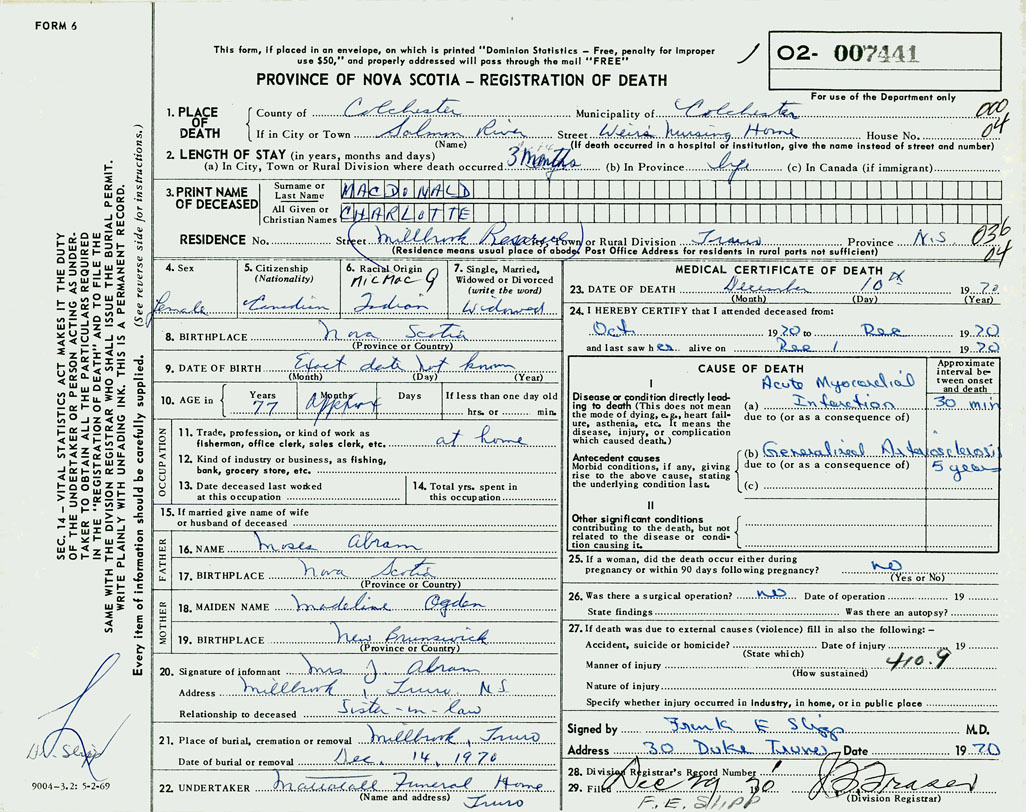 FORM 6
This form, if placed in an envelope, on which is printed "Dominion Statistics – Free, penalty for improper
use $50," and properly addressed will pass through the mail "FREE"
02- 007441
PROVINCE OF NOVA SCOTIA – REGISTRATION OF DEATH
For use of the Department only
1. PLACE OF DEATH
County of Colchester Municipality of Colchester 000
If in City or Town Salmon River Street Weirs Nursing Home House No. 04
(Name) (If death occurred in a hospital or institution, give the name instead of street and number)
2. LENGTH OF STAY (in years, months and days)
(a) In City, Town or Rural Division where death occurred 3 months (b) In Province life (c) In Canada (if immigrant)
3. PRINT NAME OF DECEASED
Surname or Last Name MACDONALD
All Given or Christian Names CHARLOTTE
RESIDENCE No. Street Millbrook Reserve Town or Rural Division Truro Province N.S 036
(Residence means usual place of abode. Post Office Address for residents in rural parts not sufficient) 04
4. Sex
Female
5. Citizenship
(Nationality)
Canadian
6. Racial Origin
MicMac 9
Indian
7. Single, Married,
Widowed or Divorced
(write the word)
Widowed
8. BIRTHPLACE Nova Scotia
(Province or Country)
9. DATE OF BIRTH Exact date not known
(Month) (Day) (Year)
10. AGE in Years Months Days If less than one day old
77 approx hrs. or min.
OCCUPATION
11. Trade, profession, or kind of work as
fisherman, office clerk, sales clerk, etc. at home
12. Kind of industry or business, as fishing,
bank, grocery store, etc.
13. Date deceased last worked
at this occupation
14. Total yrs. spent in
this occupation
15. If married give name of wife
or husband of deceased
FATHER
16. NAME Moses Abram
17. BIRTHPLACE Nova Scotia
(Province or Country)
MOTHER
18. MAIDEN NAME Madeline Ogden
19. BIRTHPLACE New Brunswick
(Province or Country)
20. Signature of informant Mrs J. Abram
Address Millbrook, Truro N.S.
Relationship to deceased Sister-in-law
21. Place of burial, cremation or removal Millbrook, Truro
Date of burial or removal Dec. 14, 1970
22. UNDERTAKER Mattatall Funeral Home
(Name and address) Truro
MEDICAL CERTIFICATE OF DEATH
23. DATE OF DEATH December 10th 1970
(Month) (Day) (Year)
24. I HEREBY CERTIFY that I attended deceased from:
Oct 1970 to Dec 1970
and last saw her alive on Dec 1 1970
CAUSE OF DEATH
Approximate
interval between onset
and death
I
Disease or condition directly leading to death (This does not
mean
the mode of dying, e.g., heart failure, asthenia, etc. It means the
disease, injury, or complication
which caused death.)
Acute Myocardial
(a) Infarction 30 min
due to (or as a consequence of)
Antecedent causes
Morbid conditions, if any, giving
rise to the above cause, stating
the underlying condition last.
(b) Generalized Arteriosclerosis
due to (or as a consequence of) 5 years
(c)
II
Other significant conditions
contributing to the death, but not
related to the disease or condition causing it.
25. If a woman, did the death occur either during
pregnancy or within 90 days following pregnancy? no
(Yes or No)
26. Was there a surgical operation? no Date of operation 19
State findings Was there an autopsy?
27. If death was due to external causes (violence) fill in also the following:–
Accident, suicide or homicide? Date of injury 19
(State which)
Manner of injury 410.9
(How sustained)
Nature of injury
Specify whether injury occurred in industry, in home, or in public place
Signed by Frank E Slipp M.D.
Address 30 Duke Truro Date 1970
28. Division Registrar's Record Number
29. Filed Dec 29 1970 Fraser
F.E. SLIPP (Division Registrar)
SEC. 14 – VITAL STATISTICS ACT MAKES IT THE DUTY
OF THE UNDERTAKER OR PERSON ACTING AS UNDERTAKER TO OBTAIN ALL THE PARTICULARS REQUIRED
IN THE "REGISTRATION OF DEATH" AND TO FILE THE
SAME WITH THE DIVISION REGISTRAR WHO SHALL ISSUE THE BURIAL PERMIT.
WRITE PLAINLY WITH UNFADING INK. THIS IS A PERMANENT RECORD.
Every item of information should be carefully supplied. (See reverse side for instructions.)
Dr. Slipp
9004-3.2: 5-2-69